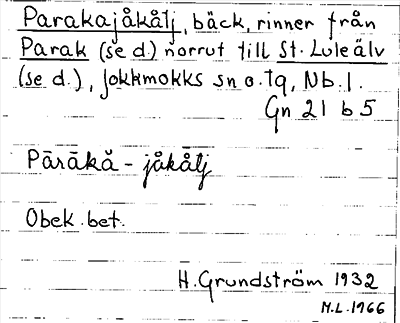 Parakajåkåtj, bäck, rinner från
Parak (se d.) norrut till St. Luleälv
(se d.), Jokkmokks sn o. tg, Nb. l.
Gn 21 b 5
Pārākå - jåkåtj
Obek. bet.
H. Grundström 1932
M.L. 1966